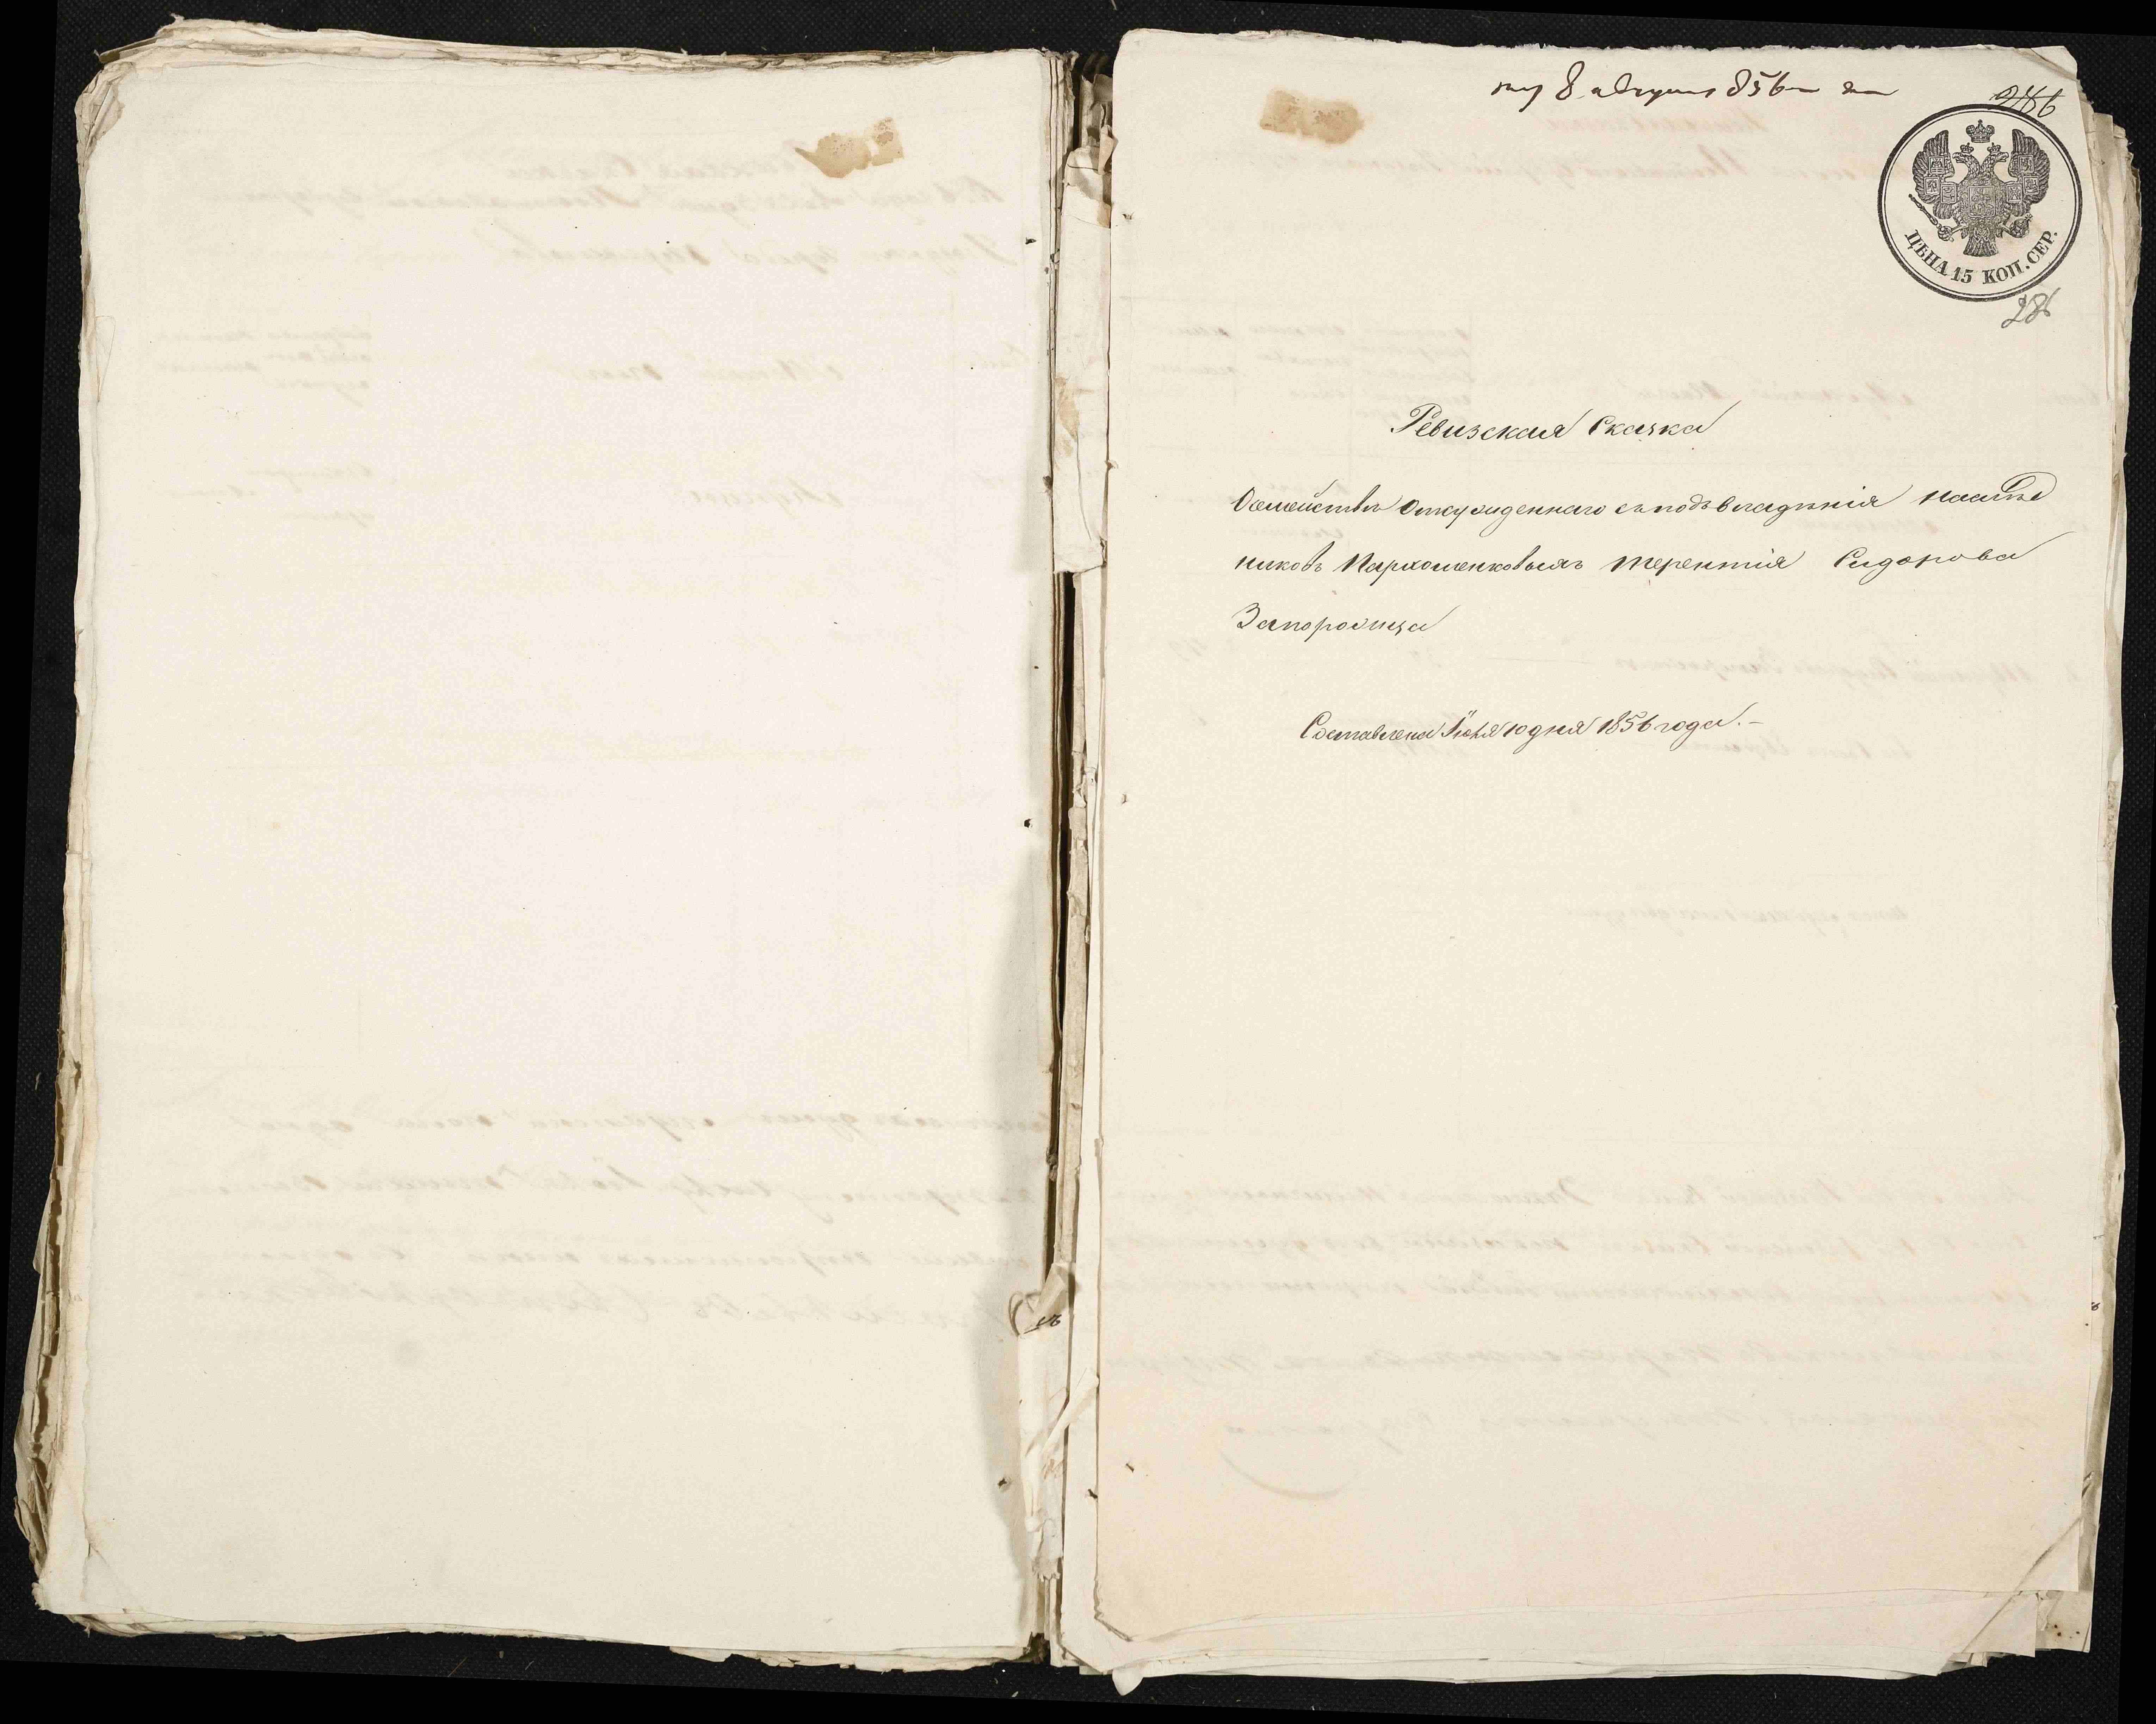 8 августа 856
286
ЦѢНА 15 КОП. СЕР.
286
Ревизская Сказка
О семействѣ отсужденнаго съ подъ владѣнія наслѣд
никовъ Пархоменковыхъ Терентія Сидорова
Запорожца
Составлена Іюня 10 дня 1856 года.-